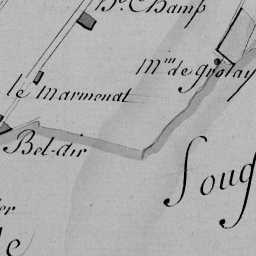 Champ
M.in de grolay
le Marmenat
Bel-air
Soug